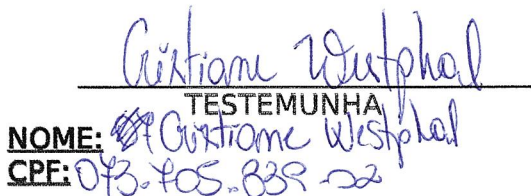 Cristiane Westphal
TESTEMUNHA
NOME: Cristiane Westphal
CPF: 073.705.839-02